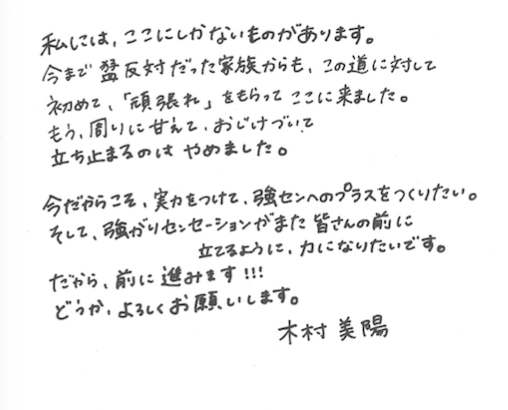 私には、ここにしかないものがあります。
今まで猛反対だった家族からも、この道に対して
初めて、「頑張れ」をもらってここに来ました。
もう、周りに甘えて、おじけづいて
立ち止まるのは やめました。
今だからこそ、実力をつけて、強センへのプラスをつくりたい。
そして、強がりセンセーションがまた 皆さんの前に
立てるように、力になりたいです。
だから、前に進みます!!!
どうか、よろしくお願いします。
木村 美陽